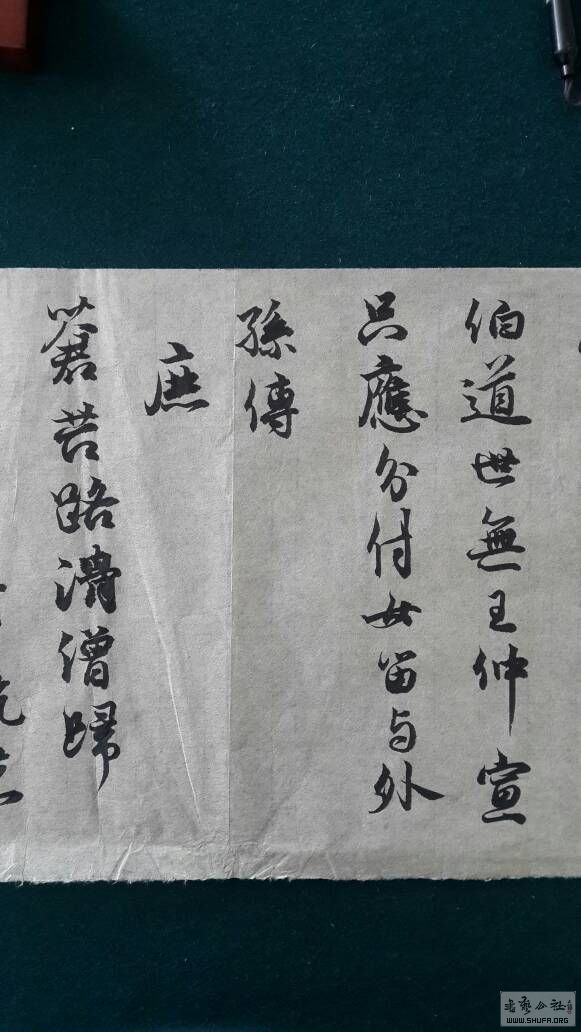 伯道世無王仲宣
只應分付女留与外
孫傳
庶
蒼苔路滑僧歸
WWW.SHUFA.ORG